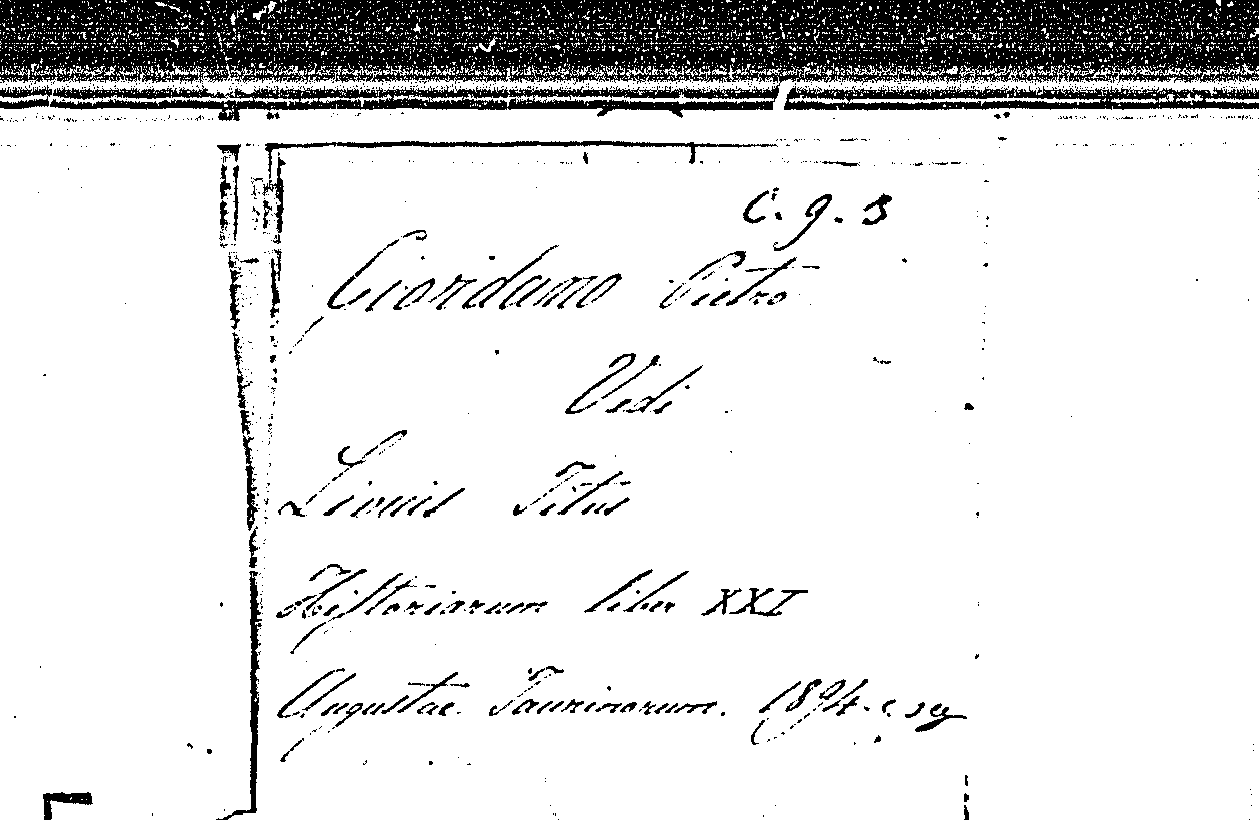 C. g. 3
Giordano Pietro
Vedi
Livius Titus
Historiarum liber XXI
Augustae Taurinorum. 1894. e sg